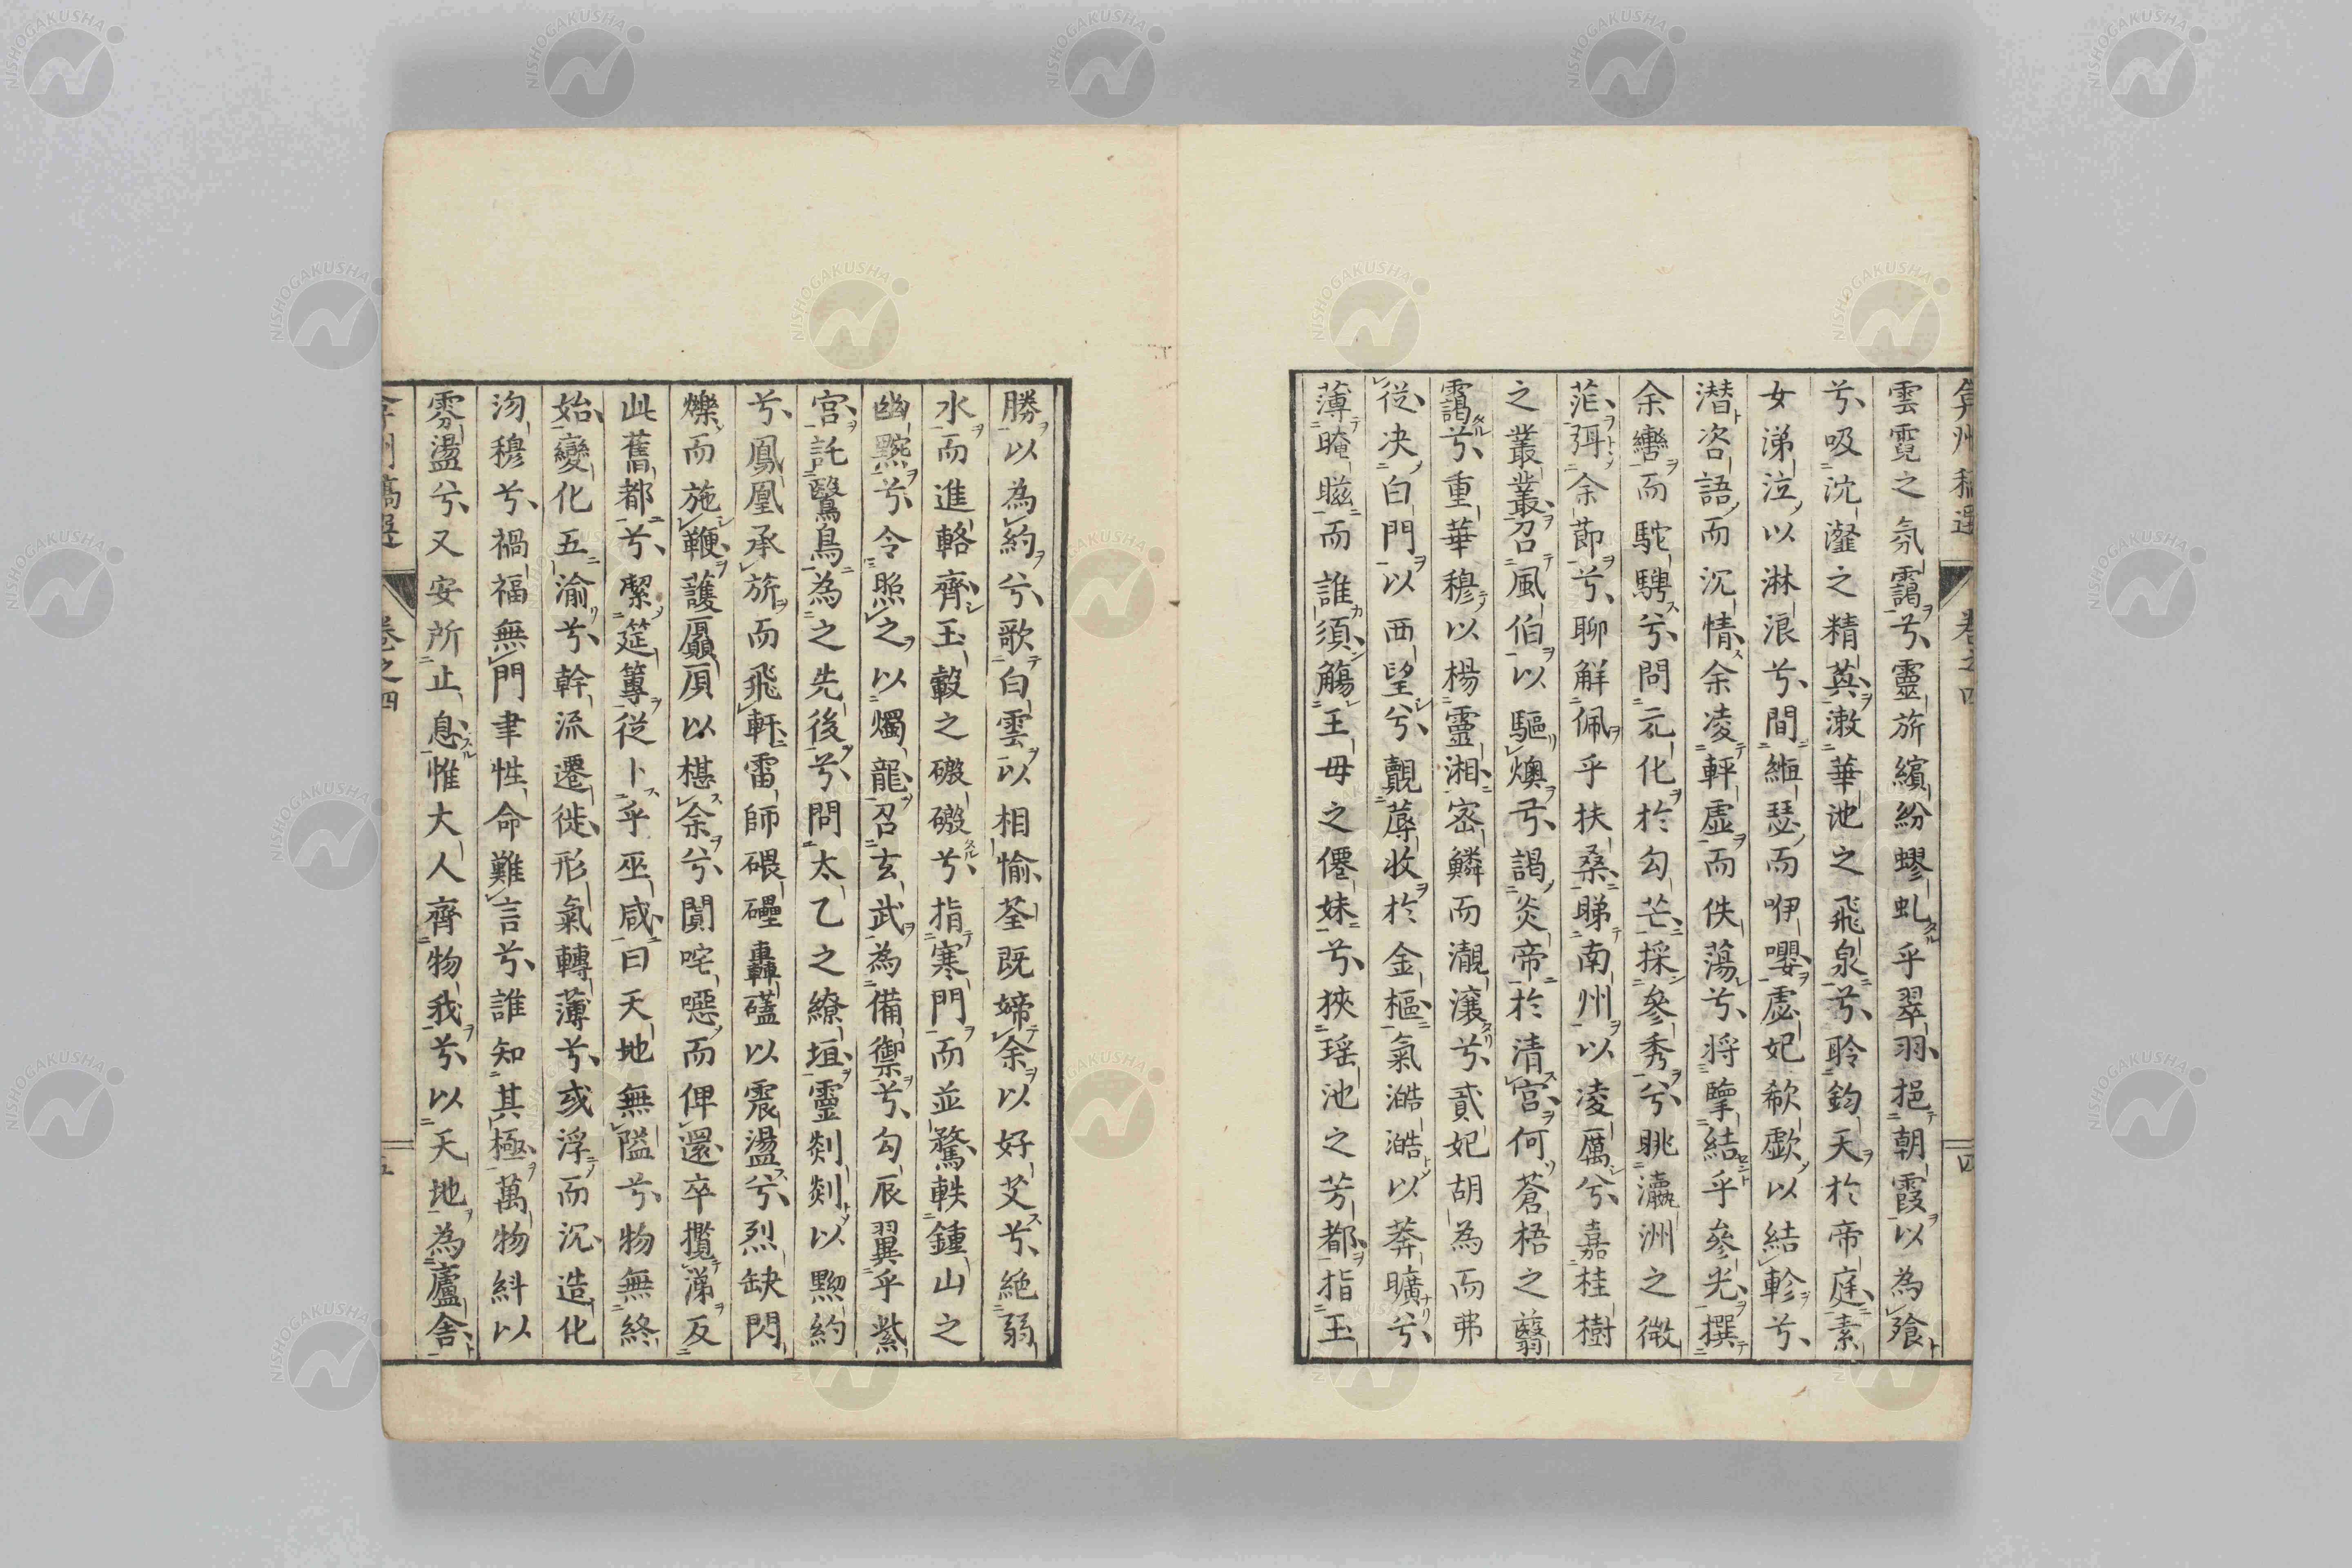 弇州稿選 卷之四 四
雲霓之氛靄兮靈旂繽紛蟉虬乎翠羽挹朝霞以為飡
兮吸沆瀣之精英漱華池之飛泉兮聆鈞天於帝庭素
女涕泣以淋浪兮間緪瑟而咿嚶虙妃欷歔以結軫兮
潜咨語而沉情余凌軯虛而佚蕩兮将擥結乎參光撰
余轡而駝騁兮問元化於勾芒採參秀兮眺瀛洲之微
茫弭余莭兮聊解佩乎扶桑睇南州以凌厲兮嘉桂樹
之叢叢召風伯以驅燠兮謁炎帝於清宮何蒼梧之蘙
靄兮重華穆以楊靈湘宻鱗而灚瀼兮貳妃胡為而弗
從决白門以西望兮覿蓐收於金樞氣澔澔以莽曠兮
薄晻㬂而誰須觴王母之僊妹兮狹瑶池之芳都指玉
勝以為約兮歌白雲以相愉荃既婥余以好艾兮絶弱
水而進輅齊玉轂之磤磤兮指寒門而並騖軼鍾山之
幽䵪兮令照之以燭龍召玄武為備禦兮勾辰翼乎紫
宮託鷖鳥為之先後兮問太乙之繚垣靈剡剡以黝約
兮鳳凰承旂而飛軒雷師碨礧轟礚以震盪兮烈缺閃
爍而施鞭護贔屓以椹余兮閴咤噁而俾還卒攬涕反
此舊都兮潔筵篿從卜乎巫咸曰天地無隘兮物無終
始變化五渝兮幹流遷徙形氣轉薄兮或浮而沉造化
沕穆兮禍福無門聿性命難言兮誰知其極萬物糾以
雰盪兮又安所止息惟大人齊物我兮以天地為廬舍
弇州稿選 卷之四 五
NISHOGAKUSHA